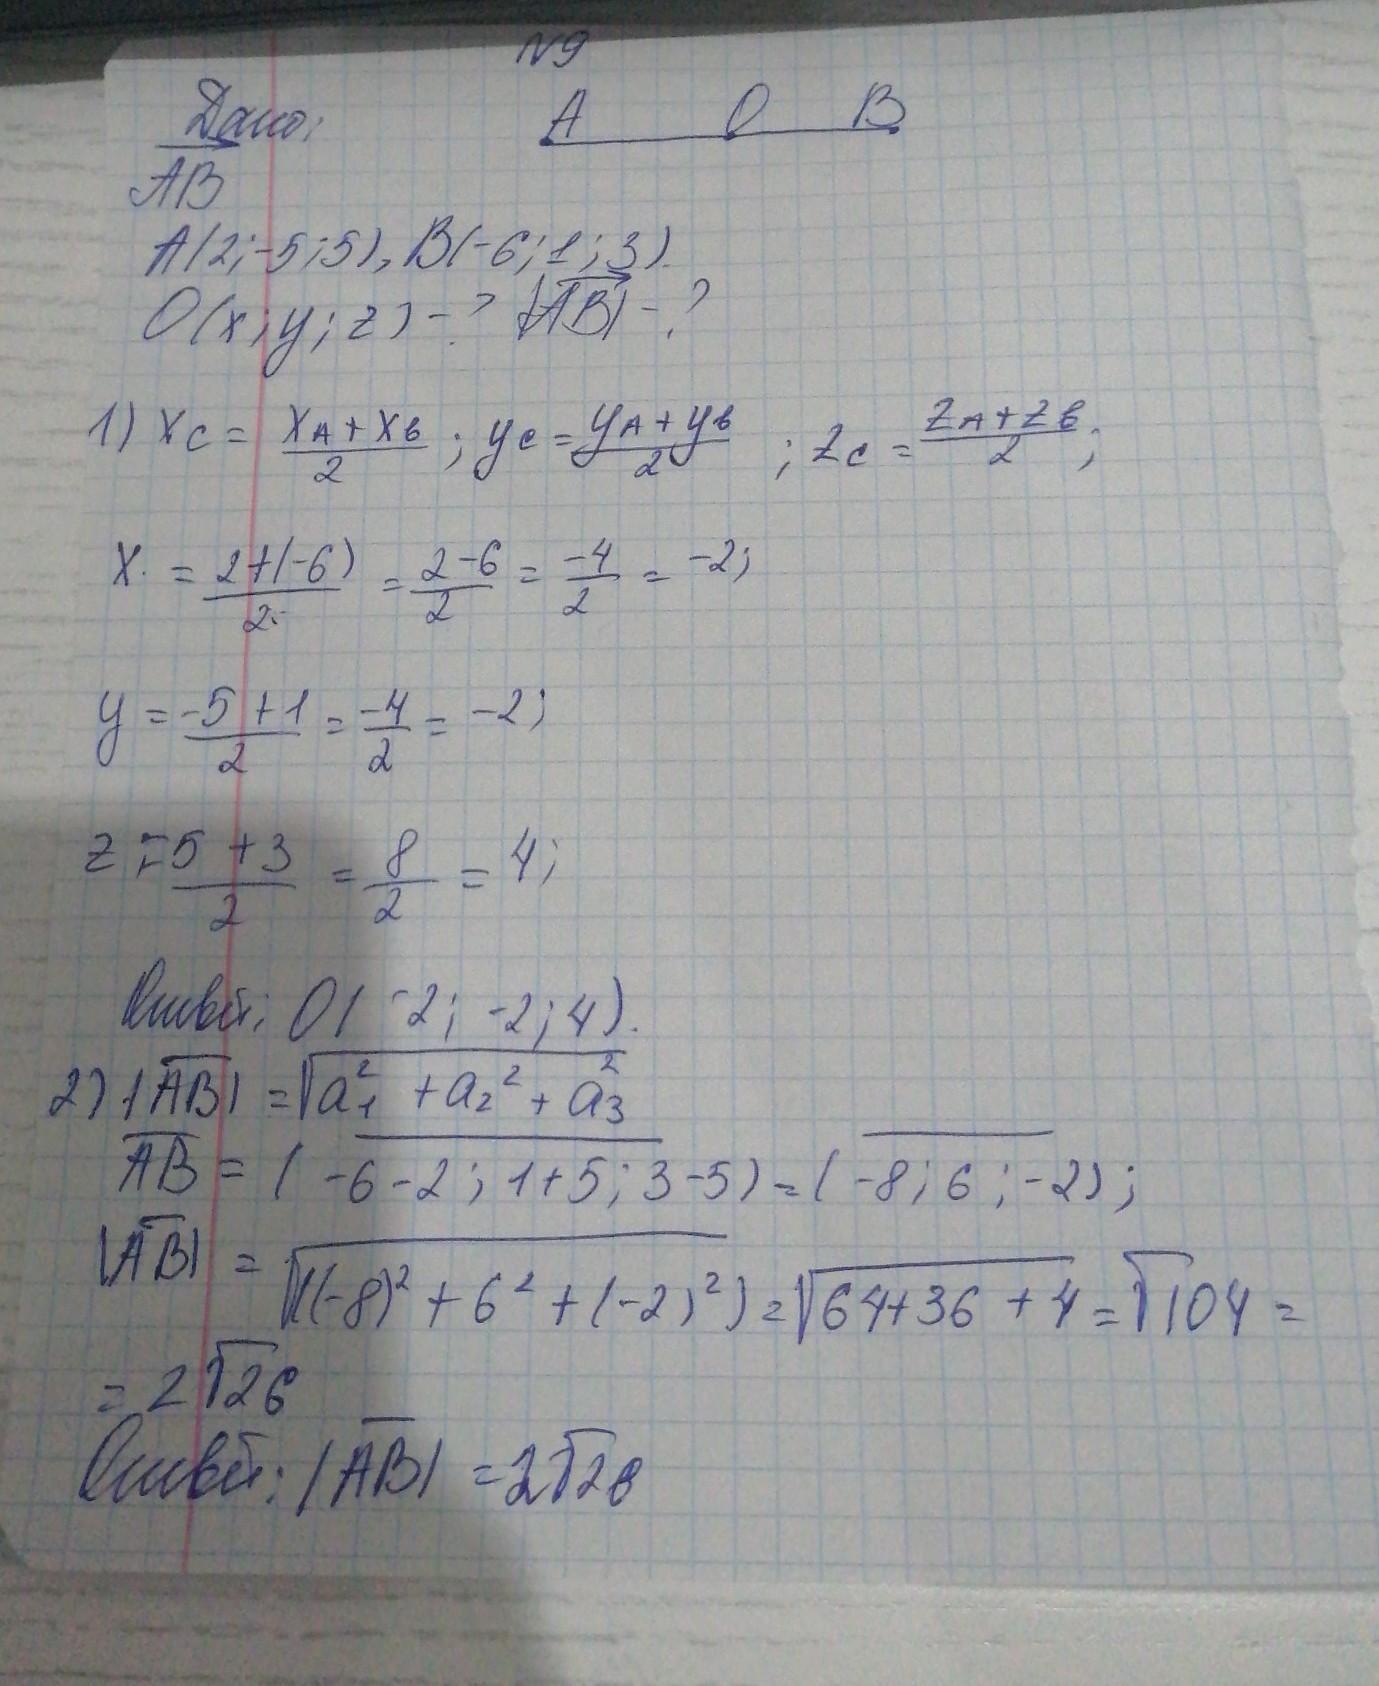 N9
Дано:
A O B
AB
A(2;-5;5), B(-6;1;3).
O(x;y;z)-? |AB|-?
1) xc = xA+xB/2; yc = yA+yB/2; zc = zA+zB/2;
x = 2+(-6)/2 = 2-6/2 = -4/2 = -2;
y = -5+1/2 = -4/2 = -2;
z = 5+3/2 = 8/2 = 4;
Ответ: O(-2; -2; 4).
2) |AB| = √a₁² + a₂² + a₃²
AB = (-6-2; 1+5; 3-5) = (-8; 6; -2);
|AB| = √((-8)² + 6² + (-2)²) = √64+36+4 = √104 =
= 2√26
Ответ: |AB| = 2√26